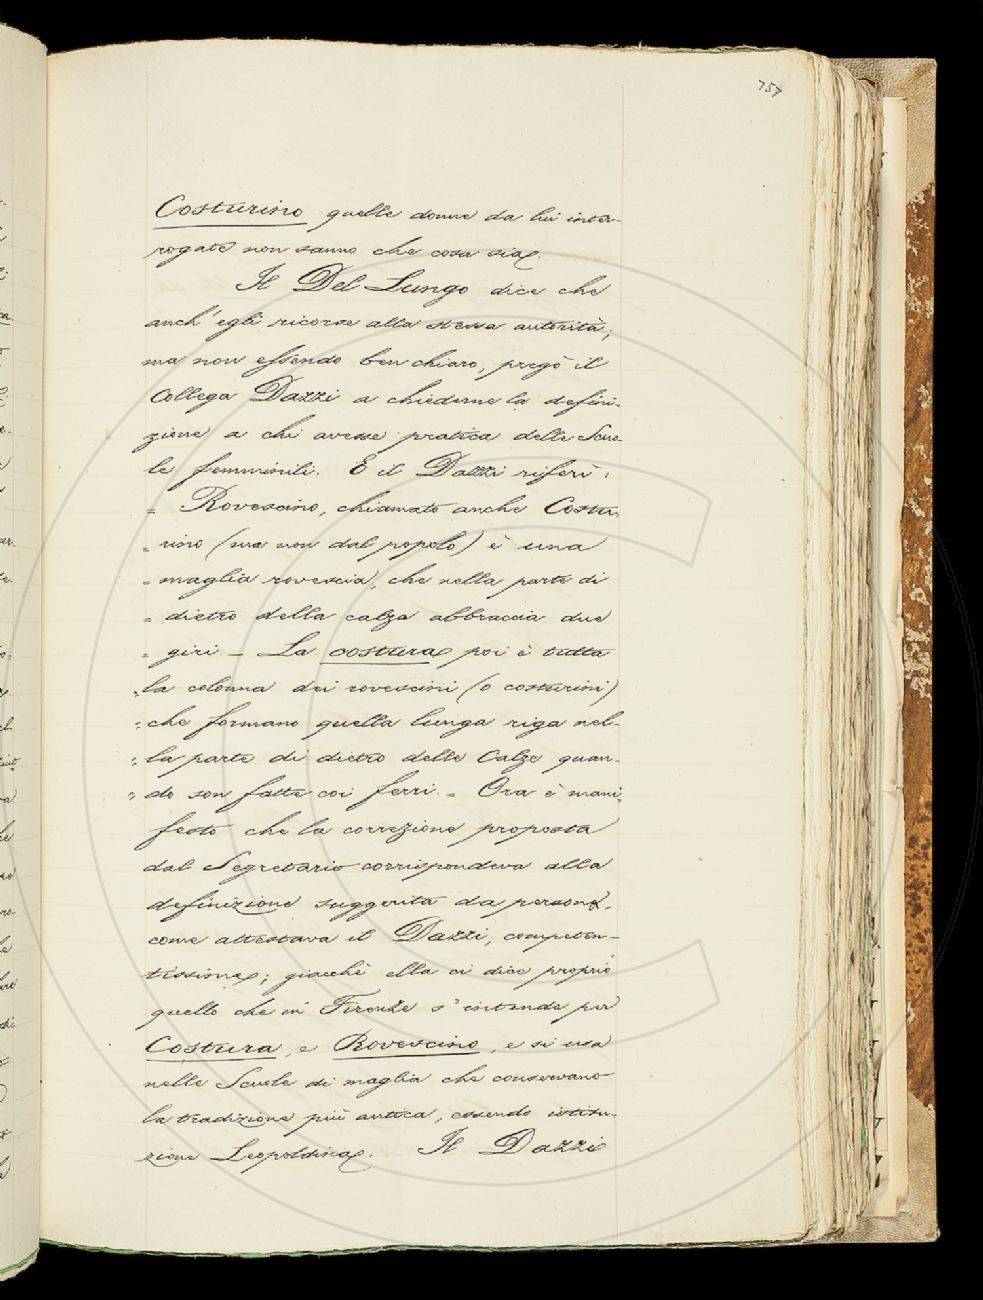 757
Costurino quelle donne da lui inter-
rogate non sanno che cosa sia.
Il Del Lungo dice che
anch'egli ricorse alla stessa autorità;
ma non essendo ben chiaro, pregò il
Collega Dazzi a chiederne la defini-
zione a chi avesse pratica delle Scuo-
le femminili. E il Dazzi riferì:
= Rovescino, chiamato anche Costu-
= rino (ma non dal popolo) è una
= maglia rovescia, che nella parte di
= dietro della calza abbraccia due
= giri. — La costura poi è tutta
= la colonna dei rovescini (o costurini)
= che formano quella lunga riga nel-
= la parte di dietro delle Calze quan-
= do son fatte coi ferri. = Ora è mani-
festo che la correzione proposta
dal Segretario corrispondeva alla
definizione suggerita da persona,
come attestava il Dazzi, competen-
tissima; giacchè ella ci dice proprio
quello che in Firenze s'intende per
Costura, e Rovescino, e si usa
nelle Scuole di maglia che conservano
la tradizione più antica, essendo istitu-
zione Leopoldina. Il Dazzi